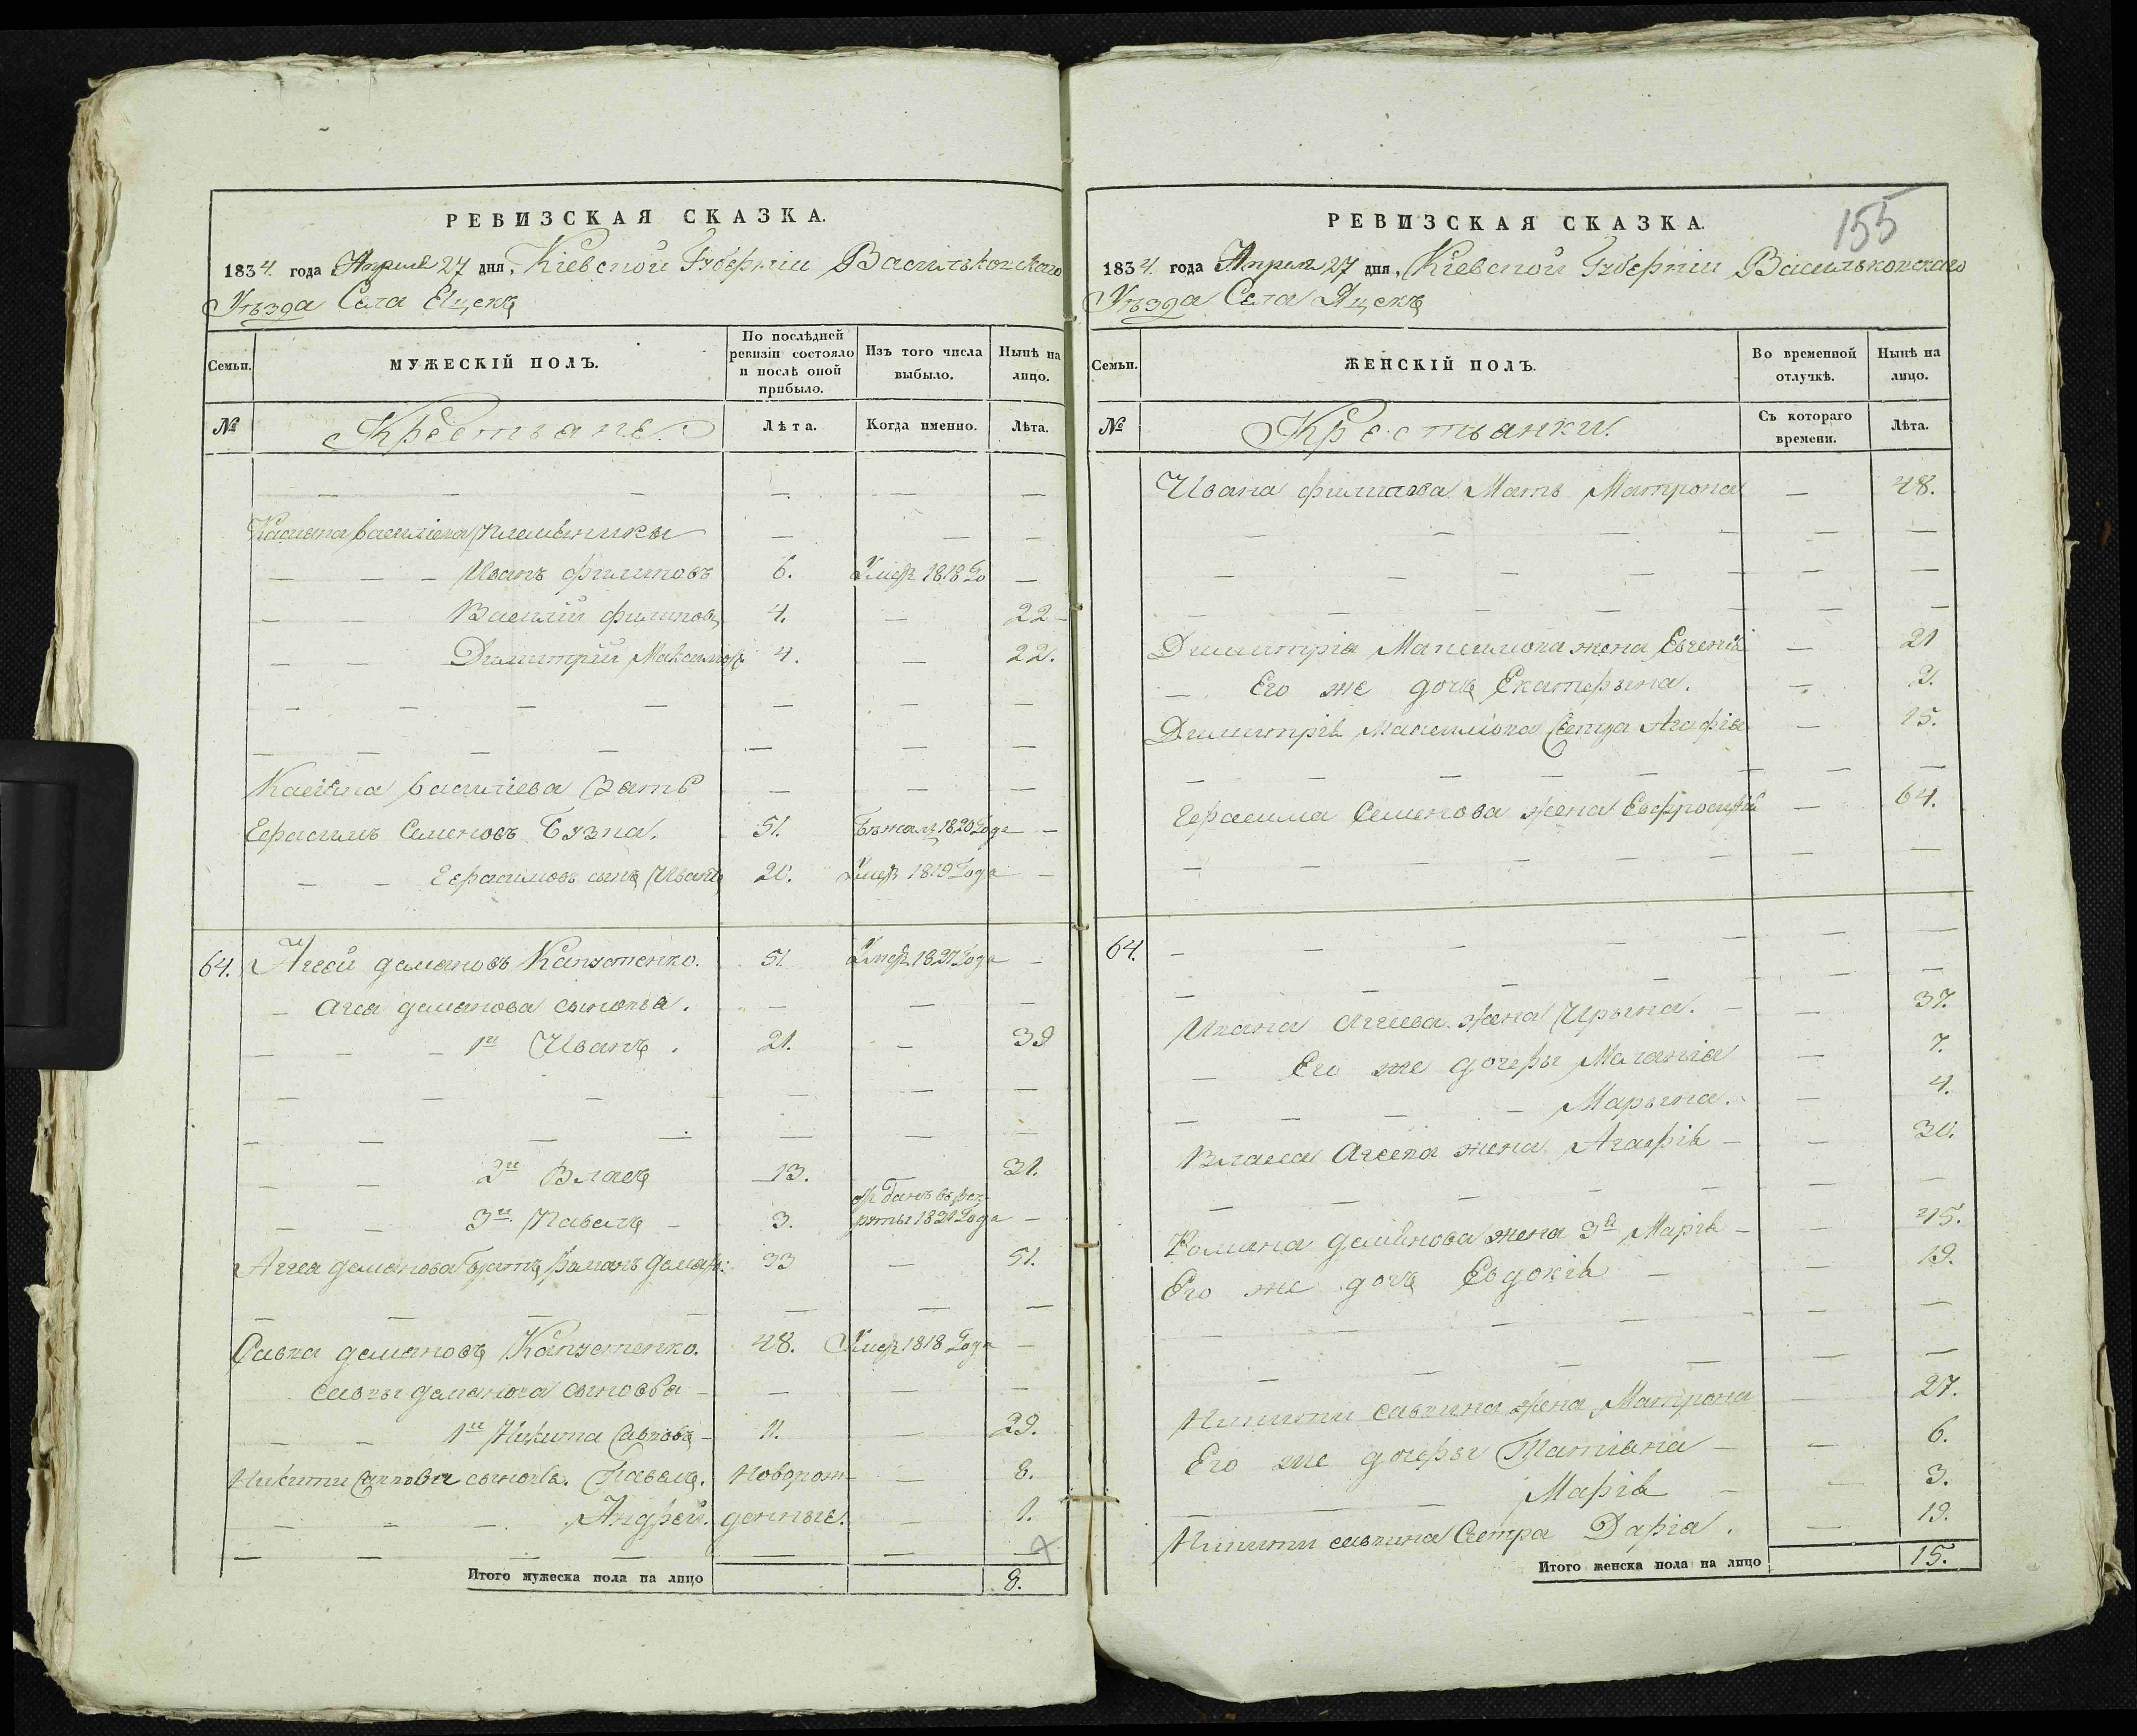 РЕВИЗСКАЯ СКАЗКА.
1834. года Апреля 27 дня, Кіевской Губерніи Васильковскаго
Уѣзда Села Яцекъ
Семьи.
МУЖЕСКІЙ ПОЛЪ.
По послѣдней ревизіи состояло и послѣ оной прибыло.
Изъ того числа выбыло.
Нынѣ на лицо.
№
Крестьяне.
Лѣта.
Когда именно.
Лѣта.
— — — — — —
Касіяна Василіева племѣники — — —
— — — Иванъ Филиповъ 6. Умеръ 1818 Го —
— — Василій Филиповъ 4. — 22
— — Димитрій Максимовъ 4. — 22.
— — — — — — —
— — — — — — —
Касіяна Василіева Зять — — —
Герасимъ Семеновъ 51. Бѣжалъ 1820 Года —
— — Герасимовъ сынъ Иванъ 20. Умеръ 1819 Года —
64. Агей Демяновъ Капустенко. 51. Умеръ 1827 Года —
— Агея Демянова сыновья. — — —
— — — 1й Иванъ. 21. — 39
— — — — — —
— — — — — — —
— — 2й Власъ 13. — 31.
— — 3й Павелъ — 3. отданъ въ рекруты 1821 Года —
Агея Демянова братъ Романъ Демян: 33 — 51.
— — — — — — —
Савка Демяновъ Капустенко. 48. Умеръ 1818 Года —
Савки Демянова сыновья — — — —
— — 1й Никита Савковъ — 11. — 29.
Никити Савкова сыновья. Павелъ. Новорож — 8.
— — — Андрей. денные. — 1.
— — — — — — —
Итого мужеска пола на лицо 8.
155
РЕВИЗСКАЯ СКАЗКА.
1834. года Апреля 27 дня, Кіевской Губерніи Васильковскаго
Уѣзда Села Яцекъ
Семьи.
ЖЕНСКІЙ ПОЛЪ.
Во временной отлучкѣ.
Нынѣ на лицо.
№
Крестьянки.
Съ котораго времени.
Лѣта.
Ивана Филипова Мать Матрона — 48.
— — — — —
— — — — — —
— — — — — —
Димитрія Максимова жена Евгенія — 21
— Его же дочь Екатерына. — 2.
Димитрія Максимова Сестра Агафія — 15.
— — — — — — — —
Герасима Семенова жена Евфросинія — 64.
— — — — — — —
64. — — — — — —
— — — — —
Ивана Агеева жена Ирына. — — 37.
— Его же дочеры Маланія — 7.
— — — — Марына. — 4.
Власа Агеева жена Агафія — — 30.
— — — — — — —
Романа Демянова жена 3я Марія — — 45.
Его же дочь Евдокія — — 19.
— — — — — — —
— — — — — —
Никити Савкина жена Матрона — 27.
Его же дочеры Татіана — — 6.
— — — Марія — — 3.
Никити Савкина Сестра Дарія. — 19.
Итого женска пола на лицо 15.